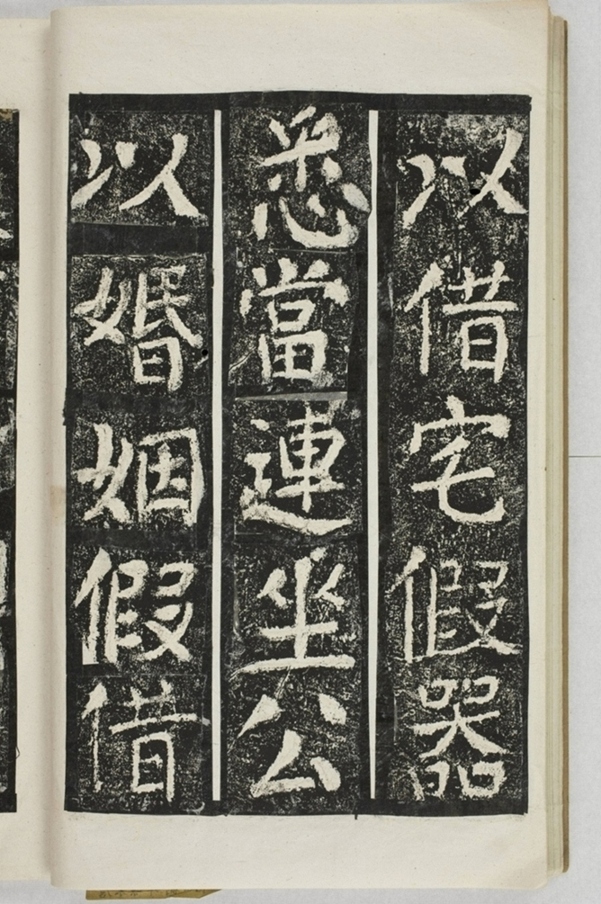 以借宅假器
悉當連坐公
以婚姻假借